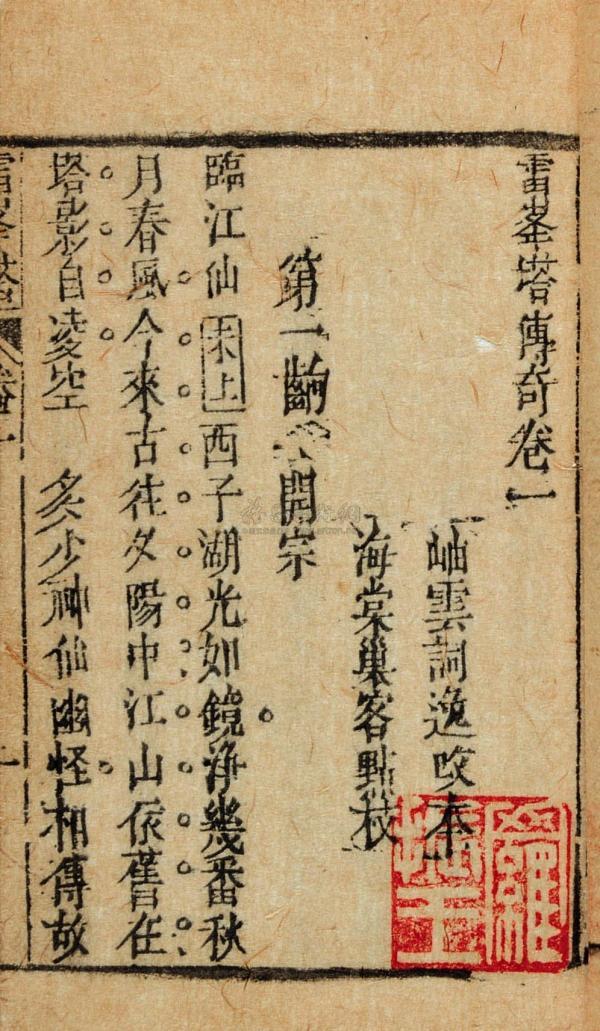 雷峯塔傳奇卷一
岫雲詞逸改本
海棠巢客點校
第一齣 開宗
臨江仙末上西子湖光如鏡淨幾番秋
月春風今來古往夕陽中江山依舊在
塔影自凌空 多少神仙幽怪相傳故
雷峯塔 卷一 一